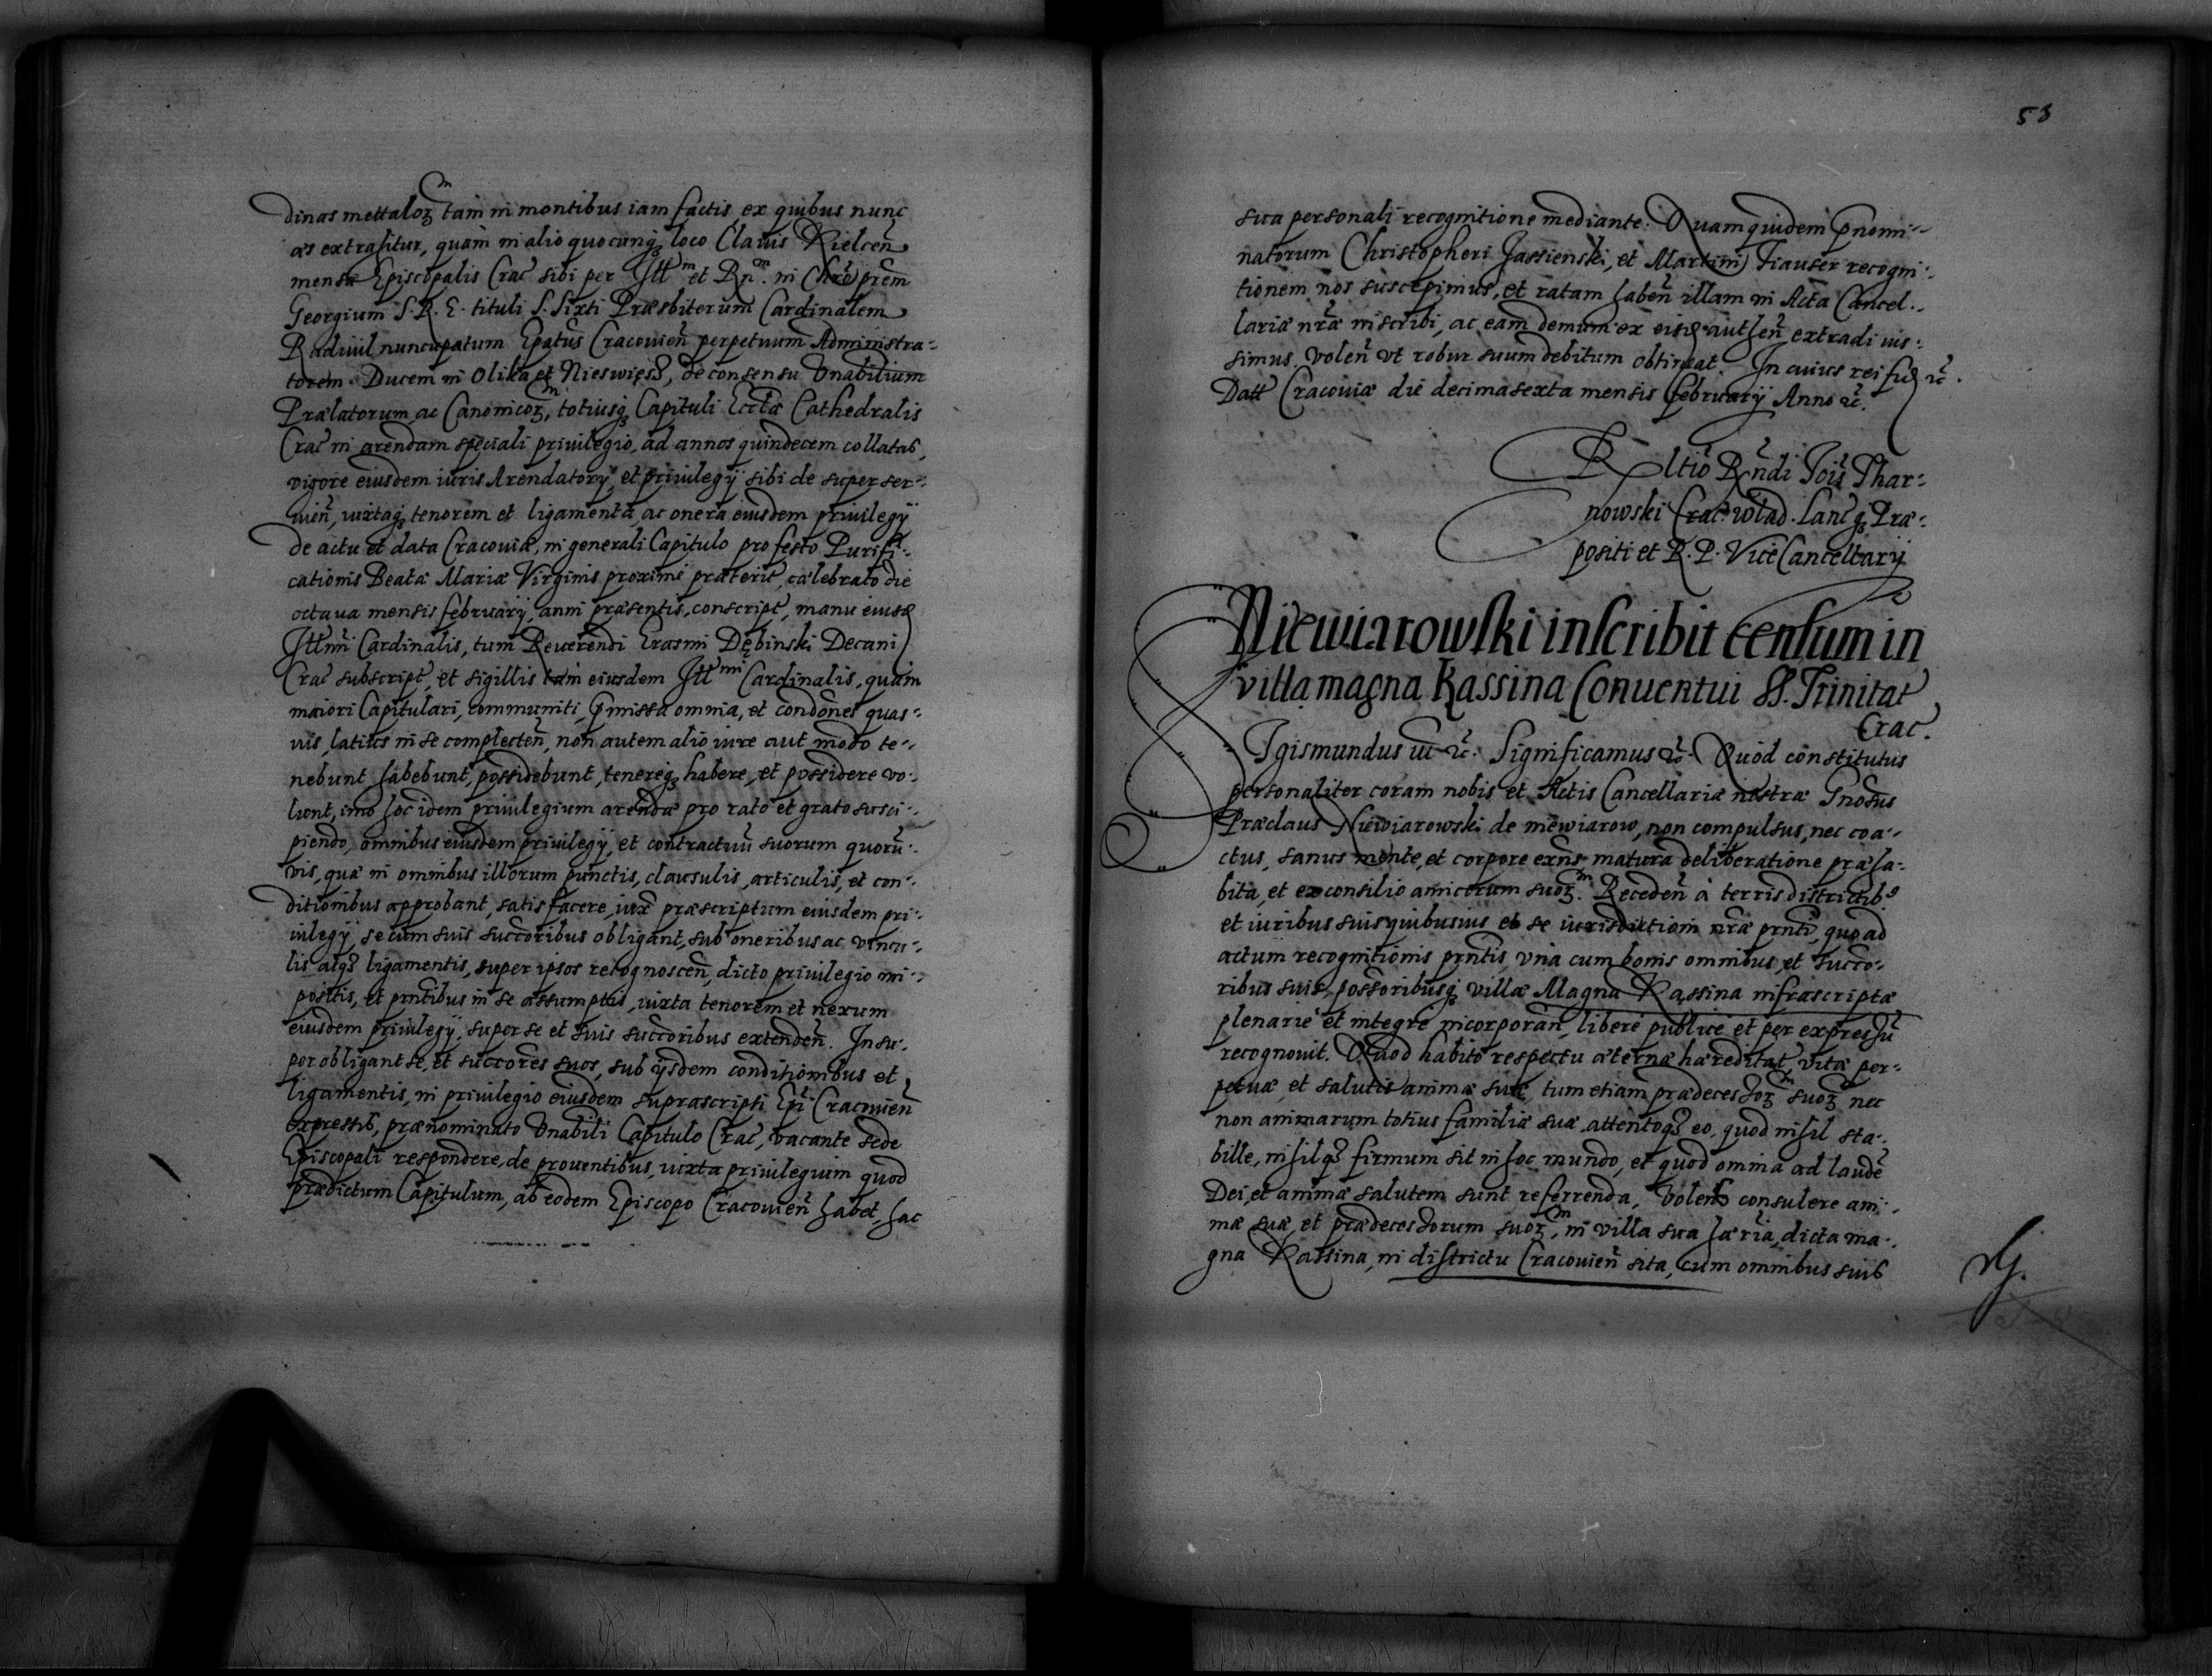 dinas mettaloꝝ tam in montibus iam factis ex quibus nunc
æs extrahitur, quam in alio quocunqȝ loco Clavis Kielcen̄
mensæ Episcopalis Crac̄ sibi per Illm et Rn̄m. in Chro prēm
Georgium S. R. E. tituli S. Sixti Præsbiterum Cardinalem
Radiuil nuncupatum Ep̄atus Cracouien̄ perpetuum Administra-
torem. Ducem in Olika et Nieswięs3, de consensu Vnabilium
Prælatorum ac Canonicoꝝ, totiusqȝ Capituli Eccłæ Cathedralis
Crac̄ in arendam speciali priuilegio, ad annos quindecem collatas,
vigore eiusdem iuris Arendatorij, et priuilegij sibi de super ser-
uien̄, iuxtaqȝ tenorem et ligamenta, ac onera eiusdem priuilegij
de actu et data Cracouiæ, in generali Capitulo pro festo Purifi-
cationis Beatæ Mariæ Virginis proximè præterit̄, cælebrato die
octaua mensis february, anni præsentis, conscript̄, manu eiusd
Illmi Cardinalis, tum Reuerendi Erasmi Dębinski Decani
Crac̄ subscript̄, et sigillis tam eiusdem Illmi Cardinalis, quam
maiori Capitulari, communiti, p̄missa omnia, et condōnes quas-
uis, latius in se complecten̄, non autem alio iure aut modo te-
nebunt habebunt, possidebunt, tenereqȝ habere, et possidere vo-
lunt, imo hoc idem priuilegium arendæ pro rato et grato susci-
piendo, omnibus eiusdem priuilegij, et contractuū suorum quorū-
vis, quæ in omnibus illorum punctis, clausulis, articulis, et con-
ditionibus approbant, satis facere, iuxͭ præscriptum eiusdem pri-
uilegij, se cum suis succoribus obligant, sub oneribus ac vincu-
lis atqȝ ligamentis, super ipsos recognoscen̄, dicto priuilegio im-
positis, et pn̄tibus in se assumptis, iuxta tenorem et nexum
eiusdem priuilegij, super se et suis succoribus extenden̄. Insu-
per obligant se, et succores suos, sub ijsdem conditionibus et
ligamentis, in priuilegio eiusdem suprascripti Ep̄i Cracouien̄
expressis, prænominato Vnabili Capitulo Crac̄, vacante sede
Episcopali respondere, de prouentibus, iuxta priuilegium quod
prædictum Capitulum, ab eodem Episcopo Cracouien̄ habet, hac
53
sua personali recognitione mediante. Quamquidem p̄nomi-
natorum Christopheri Jassienski, et Martini Tiauser recogni-
tionem nos suscepimus, et ratam haben̄ illam in Acta Cancel-
lariæ nr̄æ inscribi, ac eam demum ex eisd authen̄ extradi ius-
simus. Volen̄ vt robur suum debitum obtineat. In cuius rei fid ꝛc̄.
Datt Cracouiæ die decimasexta mensis february Anno ꝛc̄.
Rltiō Rn̄di Jois̄ Thar-
nowski Crac̄ wlad. Lanc̄qȝ Præ-
positi et R. P. Vice Cancellarij
Niewiarowski inscribit censum in
villa magna Kassina Conuentui SS. Trinitat̄
Crac.
Sigismundus iii ꝛc̄. Significamus ꝛc̄. Quod constitutus
personaliter coram nobis et Actis Cancellariæ nostræ Gnosus
Præclaus Niewiarowski de niewiarow, non compulsus, nec coa-
ctus, sanus mente, et corpore exn̄s matura deliberatione præha-
bita, et ex consilio amicorum suoꝝ. Receden̄ à terris districtibꝰ
et iuribus suis quibusuis et se iurisdictioni nr̄æ pn̄ti, quo ad
actum recognitionis pn̄tis, vnà cum bonis omnibus, et succo-
ribus suis, possoribusqȝ villæ Magna Kassina infrascriptæ
plenariè et integrè incorporan̄, liberè publicè et per expressū
recognouit. Quod habito respectu æternæ hæreditat̄, vitæ per-
petuæ, et salutis animæ suæ, tum etiam prædecessoꝝ suoꝝ nec
non animarum totius familiæ suæ attentoqȝ eo, quod nihil sta-
bille, nihilqȝ firmum sit in hoc mundo, et quod omnia ad laudē
Dei, et animæ salutem sunt referrenda, Volens consulere ani-
mæ suæ, et prædecessorum suoꝝ, in villa sua hæria, dicta ma-
gna Kassina, in districtu Cracouien̄ sita, cum omnibus suis